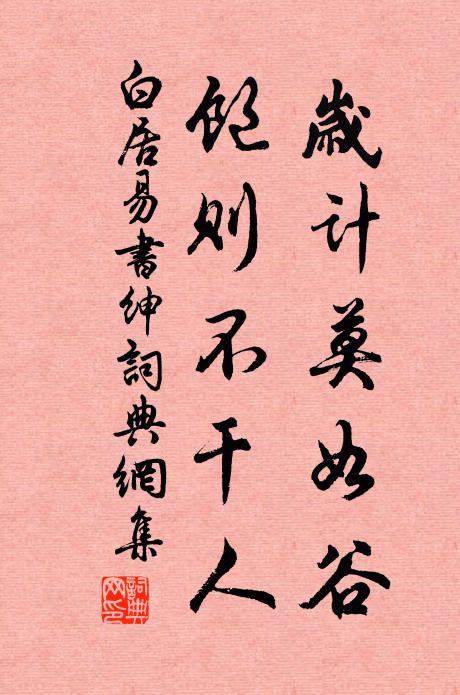 歲计莫如谷
飽则不干人
白居易書紳詞典網集
詞典网印